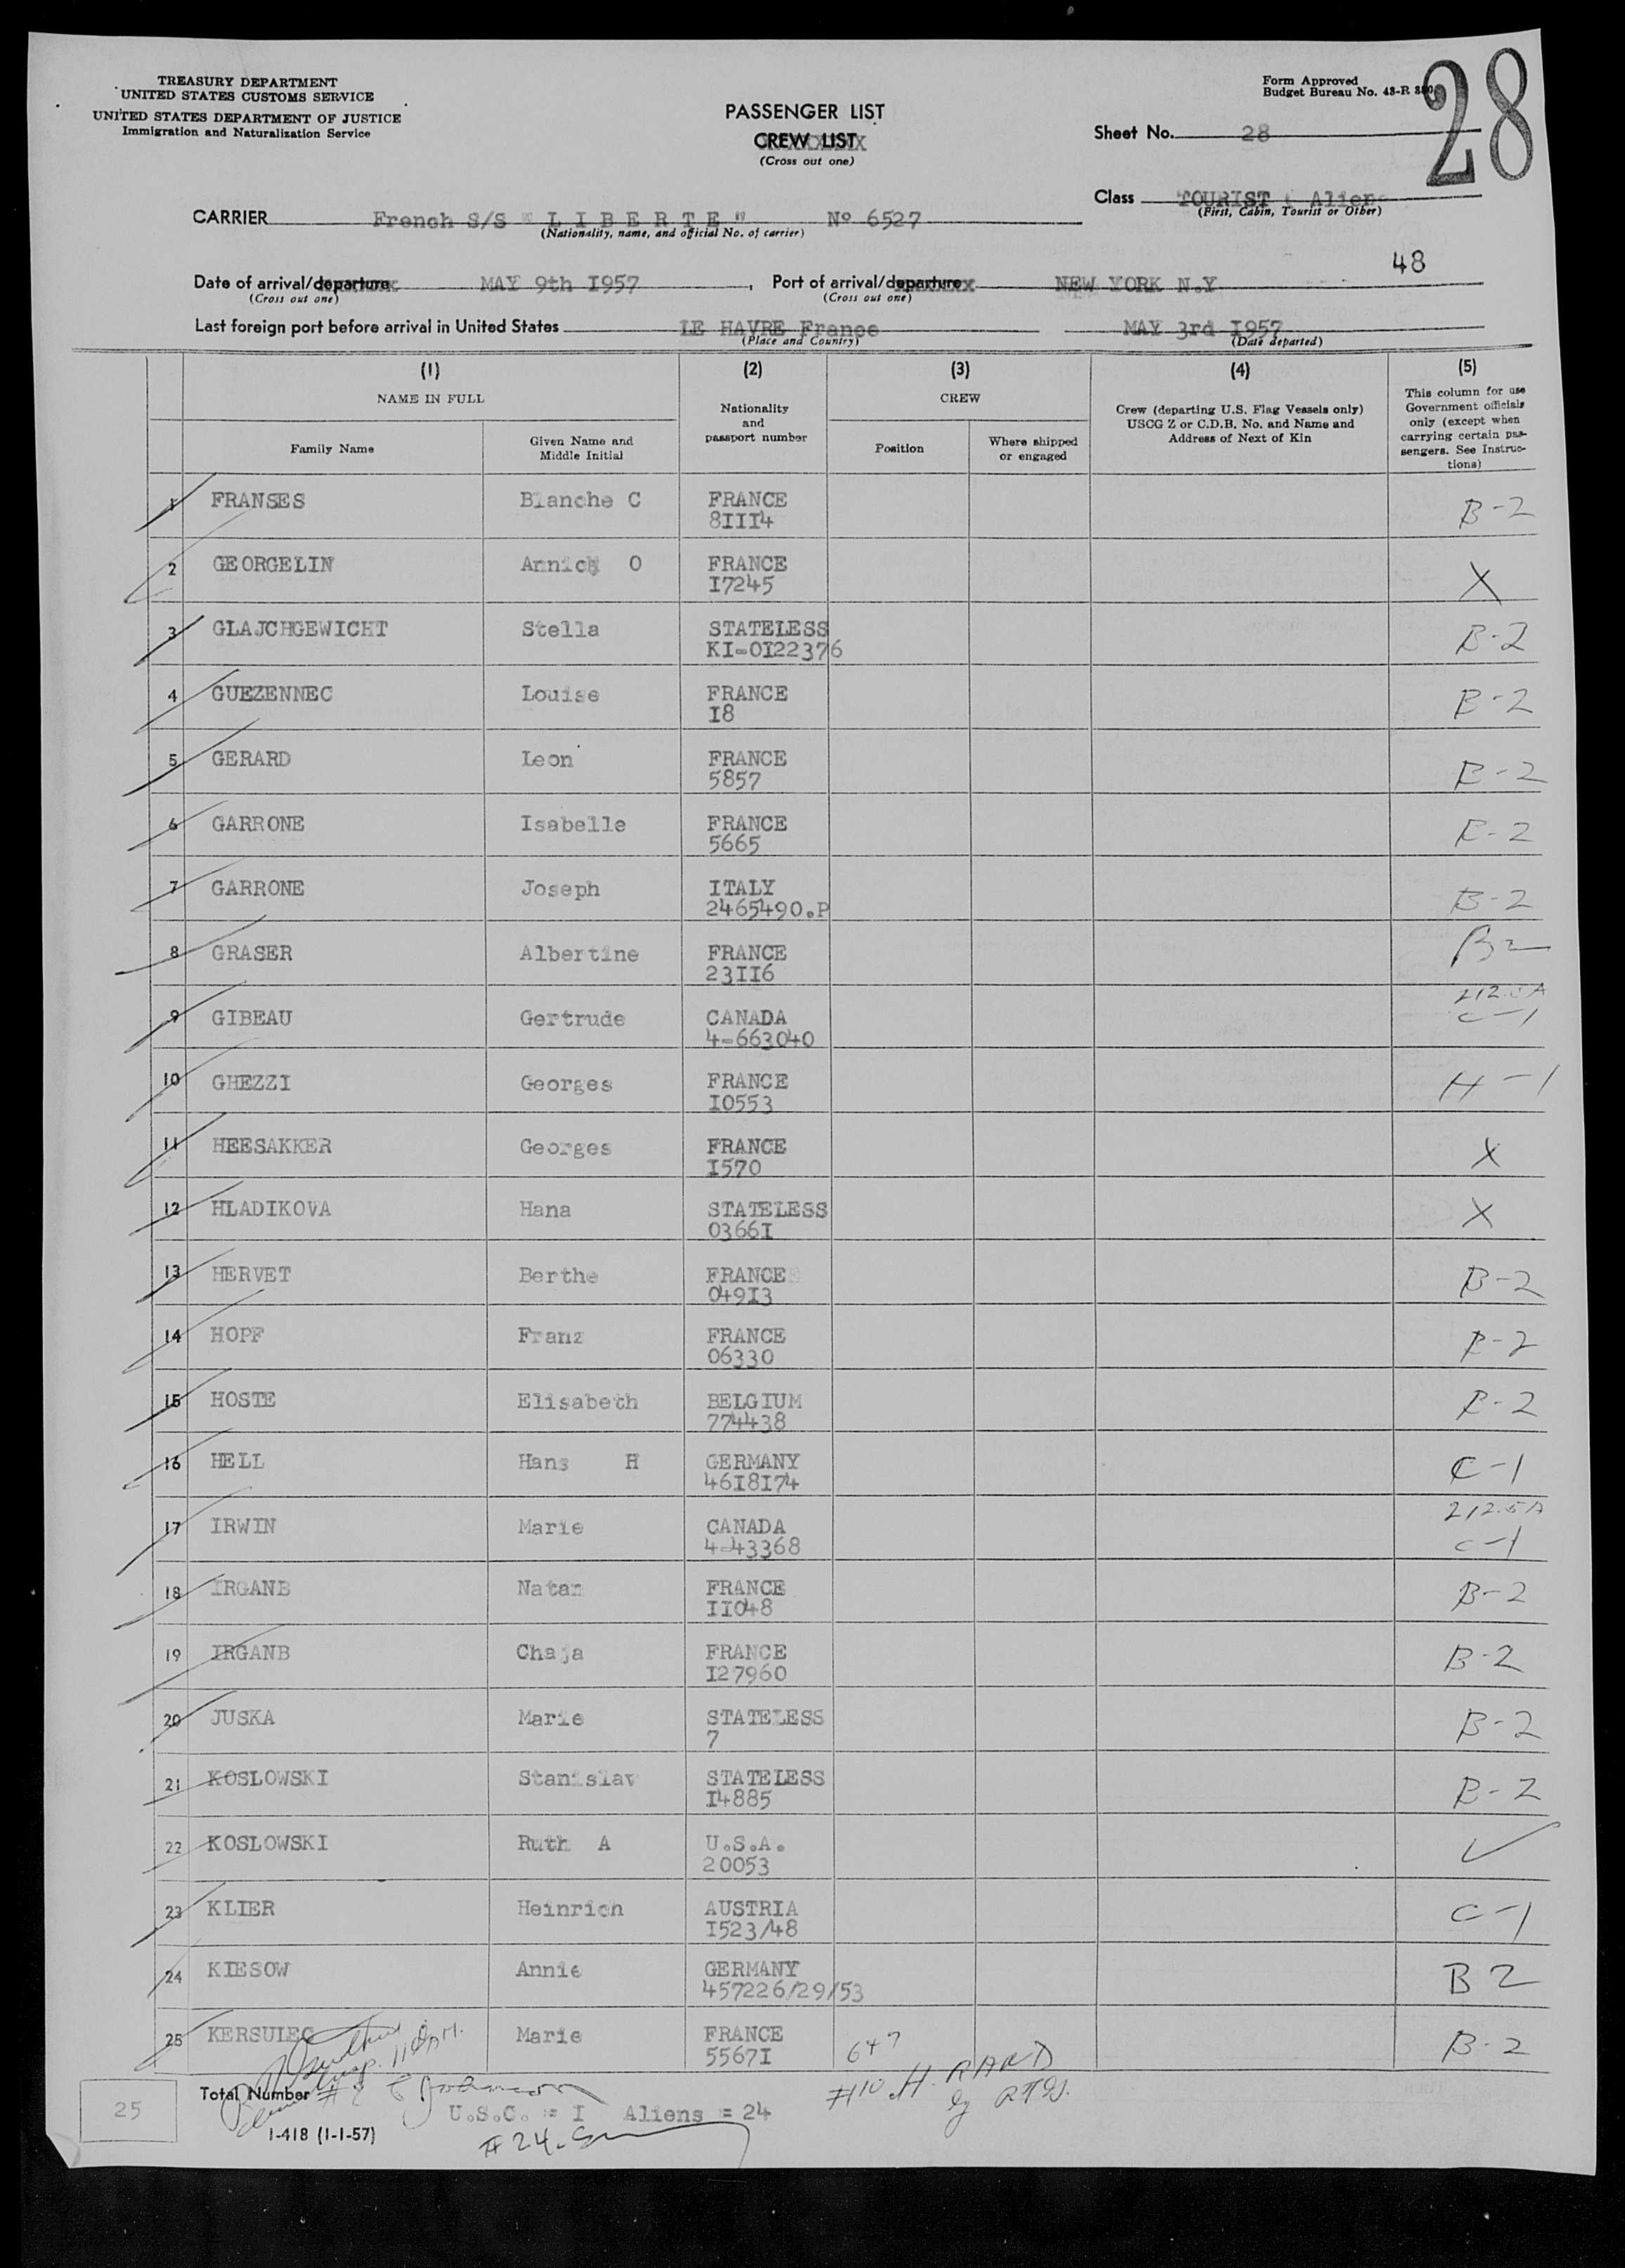 TREASURY DEPARTMENT
UNITED STATES CUSTOMS SERVICE
UNITED STATES DEPARTMENT OF JUSTICE
Immigration and Naturalization Service
PASSENGER LIST
CREW LIST
(Cross out one)
Form Approved
Budget Bureau No. 43-R
28
Sheet No. 28
Class TOURIST Aliens
(First, Cabin, Tourist or Other)
CARRIER French S/S " L I B E R T E " Nº 6527
(Nationality, name, and official No. of carrier)
48
Date of arrival/departure MAY 9th I957, Port of arrival/departure NEW YORK N.Y
(Cross out one) (Cross out one)
Last foreign port before arrival in United States LE HAVRE France MAY 3rd I957
(Place and Country) (Date departed)
(1) (2) (3) (4) (5)
NAME IN FULL
Family Name
Given Name and
Middle Initial
Nationality
and
passport number
CREW
Position
Where shipped
or engaged
Crew (departing U.S. Flag Vessels only)
USCG Z or C.D.B. No. and Name and
Address of Next of Kin
This column for use
Government officials
only (except when
carrying certain pas-
sengers. See Instruc-
tions)
1 FRANSES Blanche C FRANCE B-2
8III4
2 GEORGELIN Annick O FRANCE X
I7245
3 GLAJCHGEWICHT Stella STATELESS B-2
KI-0I22376
4 GUEZENNEC Louise FRANCE B-2
I8
5 GERARD Leon FRANCE B-2
5857
6 GARRONE Isabelle FRANCE B-2
5665
7 GARRONE Joseph ITALY B-2
2465490.P
8 GRASER Albertine FRANCE B2
23II6
212.5A
9 GIBEAU Gertrude CANADA C-1
4-663040
10 GHEZZI Georges FRANCE H-1
I0553
11 HEESAKKER Georges FRANCE X
I570
12 HLADIKOVA Hana STATELESS X
0366I
13 HERVET Berthe FRANCE B-2
049I3
14 HOPF Franz FRANCE B-2
06330
15 HOSTE Elisabeth BELGIUM B-2
774438
16 HELL Hans H GERMANY C-1
46I8I74
212.5A
17 IRWIN Marie CANADA C-1
4-43368
18 IRGANB Natan FRANCE B-2
II048
19 IRGANB Chaja FRANCE B-2
I27960
20 JUSKA Marie STATELESS B-2
7
21 KOSLOWSKI Stanislav STATELESS B-2
I4885
22 KOSLOWSKI Ruth A U.S.A. ✓
20053
23 KLIER Heinrich AUSTRIA C-1
I523/48
24 KIESOW Annie GERMANY B2
457226/29/53
25 KERSULEC Marie FRANCE B-2
5567I
647
#10 H. RAND
by
Total Number
25
U.S.C. = I Aliens = 24
I-418 (1-1-57)
#24.